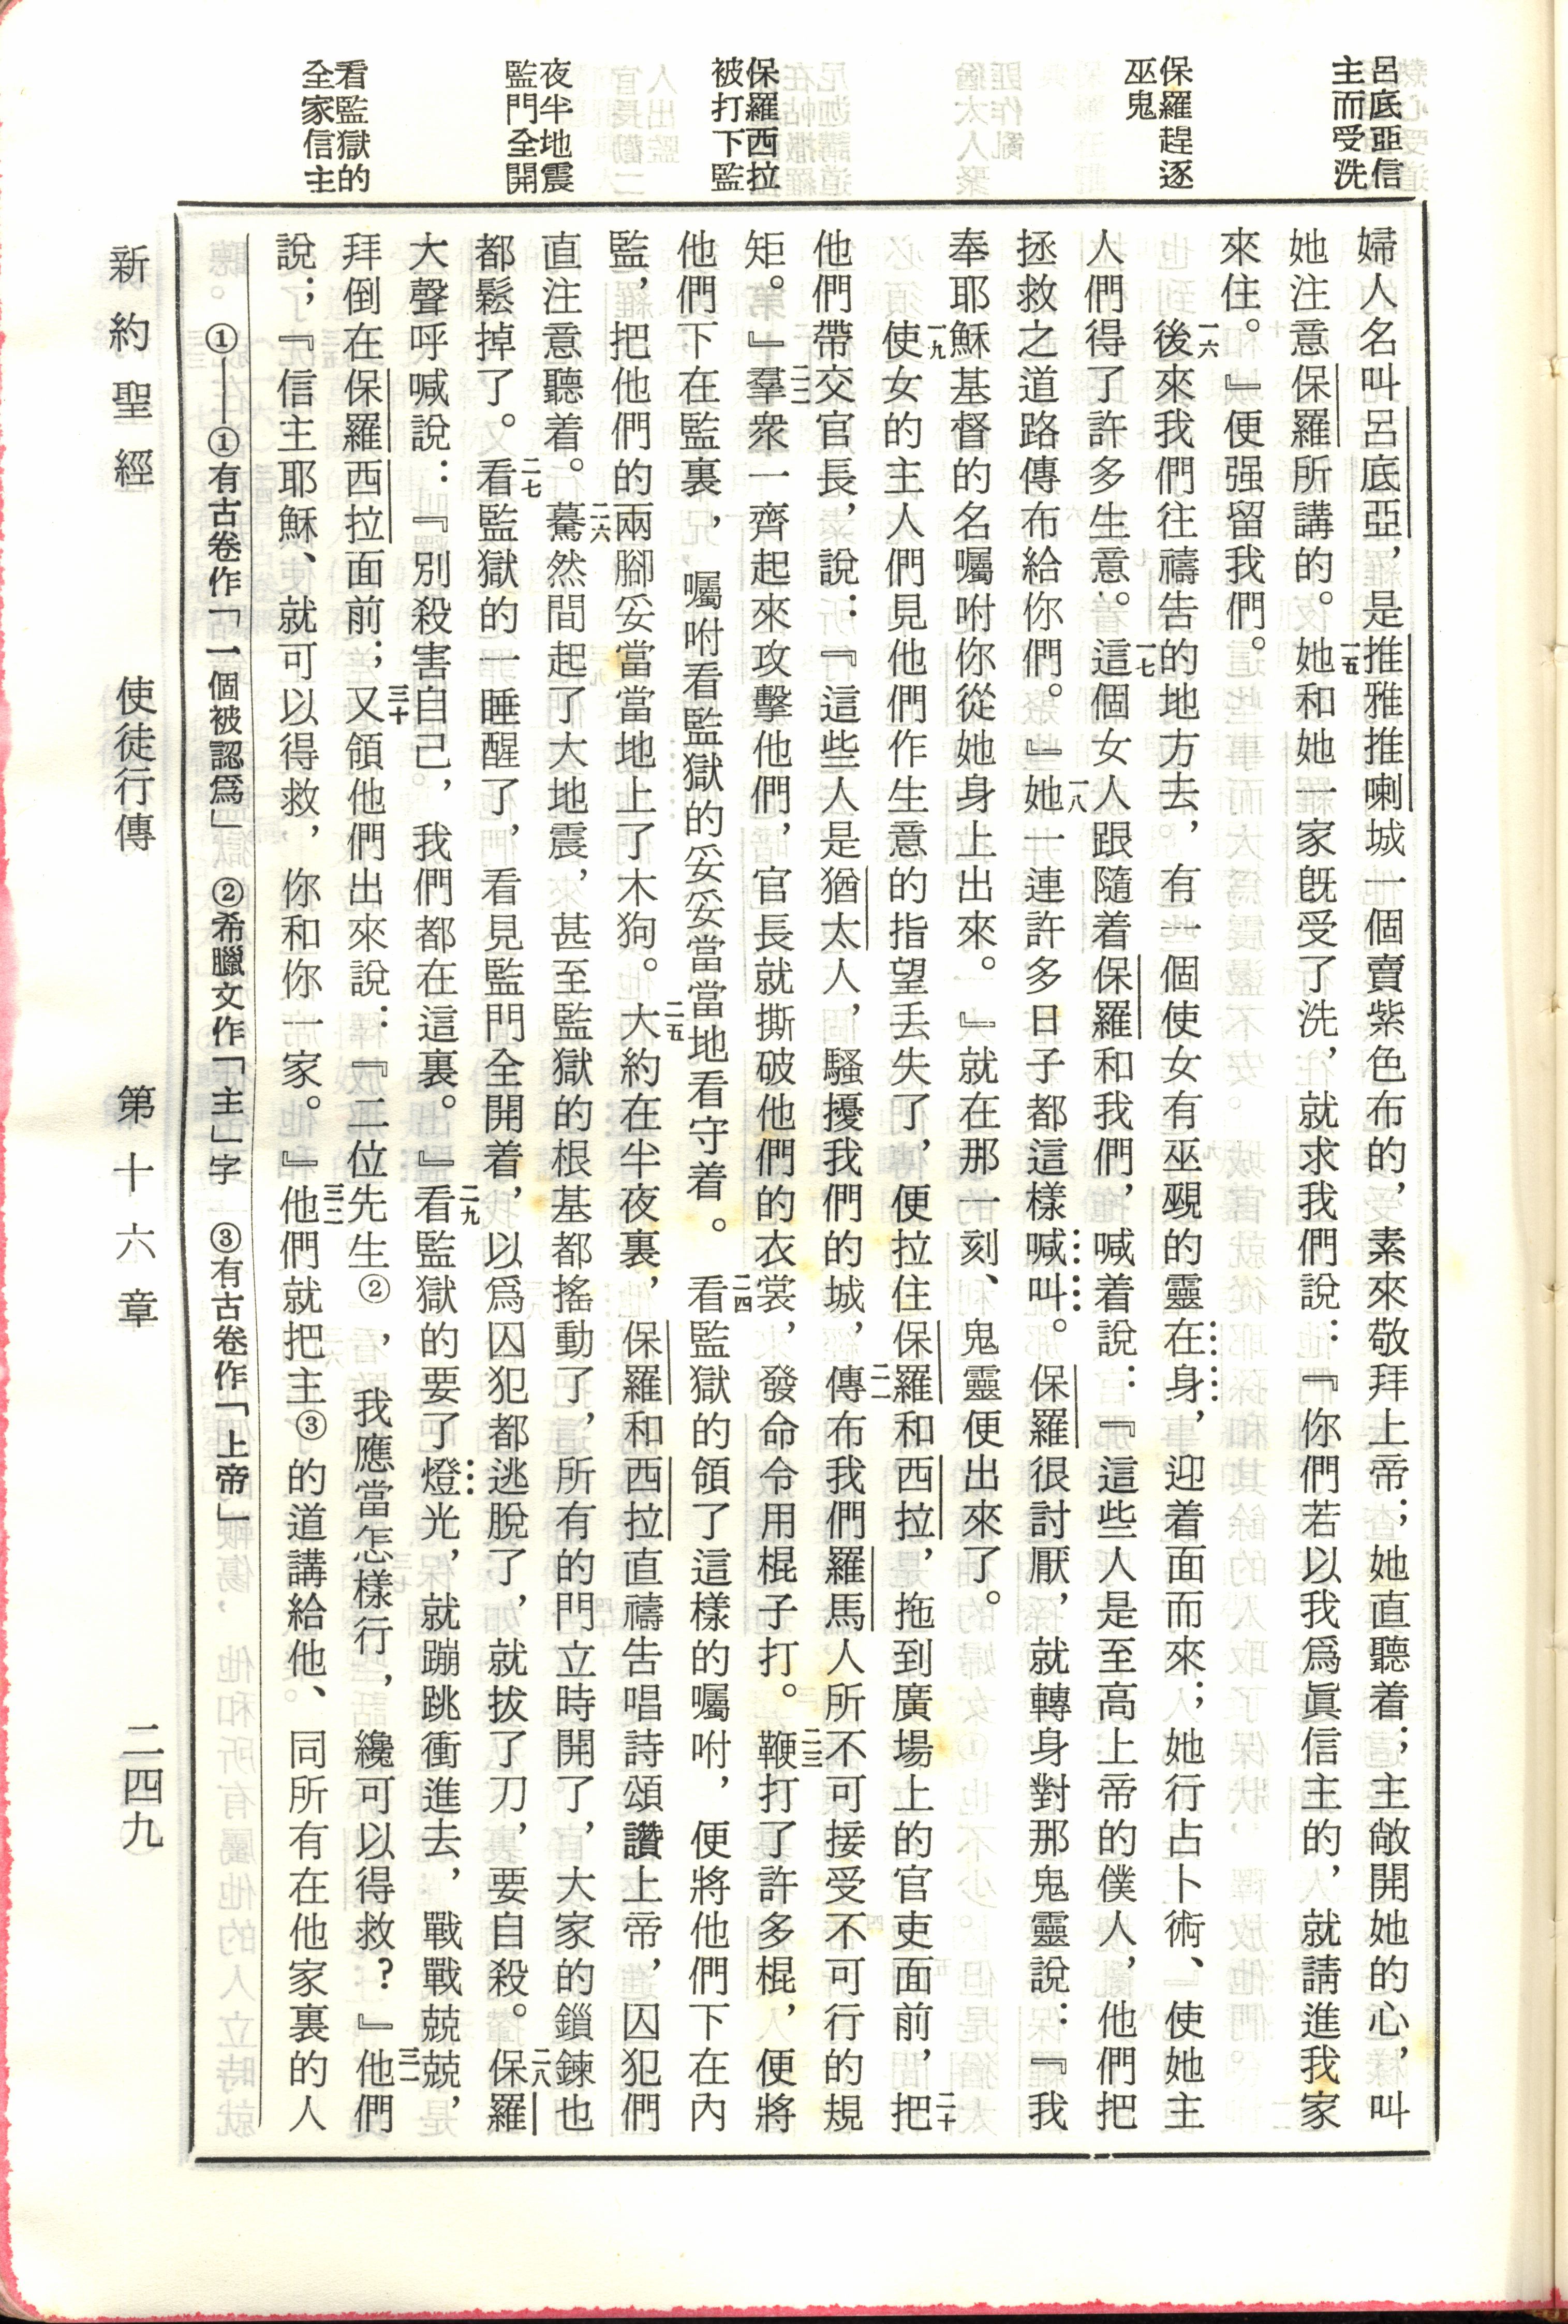 呂底亞信
主而受洗
保羅趕逐
巫鬼
保羅西拉
被打下監
夜半地震
監門全開
看監獄的
全家信主
婦人名叫呂底亞，是推雅推喇城一個賣紫色布的，素來敬拜上帝；她直聽着；主敞開她的心，叫
她注意保羅所講的。一五她和她一家旣受了洗，就求我們說：『你們若以我爲眞信主的，就請進我家
來住。』便强留我們。
一六後來我們往禱告的地方去，有一個使女有巫覡的靈在身，迎着面而來；她行占卜術、使她主
人們得了許多生意。一七這個女人跟隨着保羅和我們，喊着說：『這些人是至高上帝的僕人，他們把
拯救之道路傳布給你們。』一八她一連許多日子都這樣喊叫。保羅很討厭，就轉身對那鬼靈說：『我
奉耶穌基督的名囑咐你從她身上出來。』就在那一刻、鬼靈便出來了。
一九使女的主人們見他們作生意的指望丢失了，便拉住保羅和西拉，拖到廣場上的官吏面前，二十把
他們帶交官長，說：『這些人是猶太人，騷擾我們的城，二一傳布我們羅馬人所不可接受不可行的規
矩。』二二羣衆一齊起來攻擊他們，官長就撕破他們的衣裳，發命令用棍子打。二三鞭打了許多棍，便將
他們下在監裏，囑咐看監獄的妥妥當當地看守着。二四看監獄的領了這樣的囑咐，便將他們下在內
監，把他們的兩腳妥當當地上了木狗。二五大約在半夜裏，保羅和西拉直禱告唱詩頌讚上帝，囚犯們
直注意聽着。二六驀然間起了大地震，甚至監獄的根基都搖動了，所有的門立時開了，大家的鎖鍊也
都鬆掉了。二七看監獄的一睡醒了，看見監門全開着，以爲囚犯都逃脫了，就拔了刀，要自殺。二八保羅
大聲呼喊說：『別殺害自己，我們都在這裏。』二九看監獄的要了燈光，就蹦跳衝進去，戰戰兢兢，
拜倒在保羅西拉面前；三十又領他們出來說：『二位先生②，我應當怎樣行，纔可以得救？』三一他們
說；『信主耶穌、就可以得救，你和你一家。』三二他們就把主③的道講給他、同所有在他家裏的人
①—①有古卷作「一個被認爲」 ②希臘文作「主」字 ③有古卷作「上帝」
新約聖經 使徒行傳 第十六章 二四九